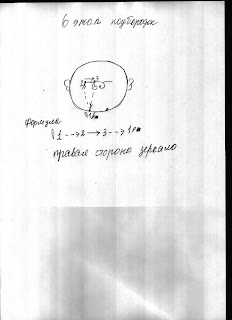 6 этап подбородок
Формула
1 --> 2 → 3 --> 1
правая сторона зеркало